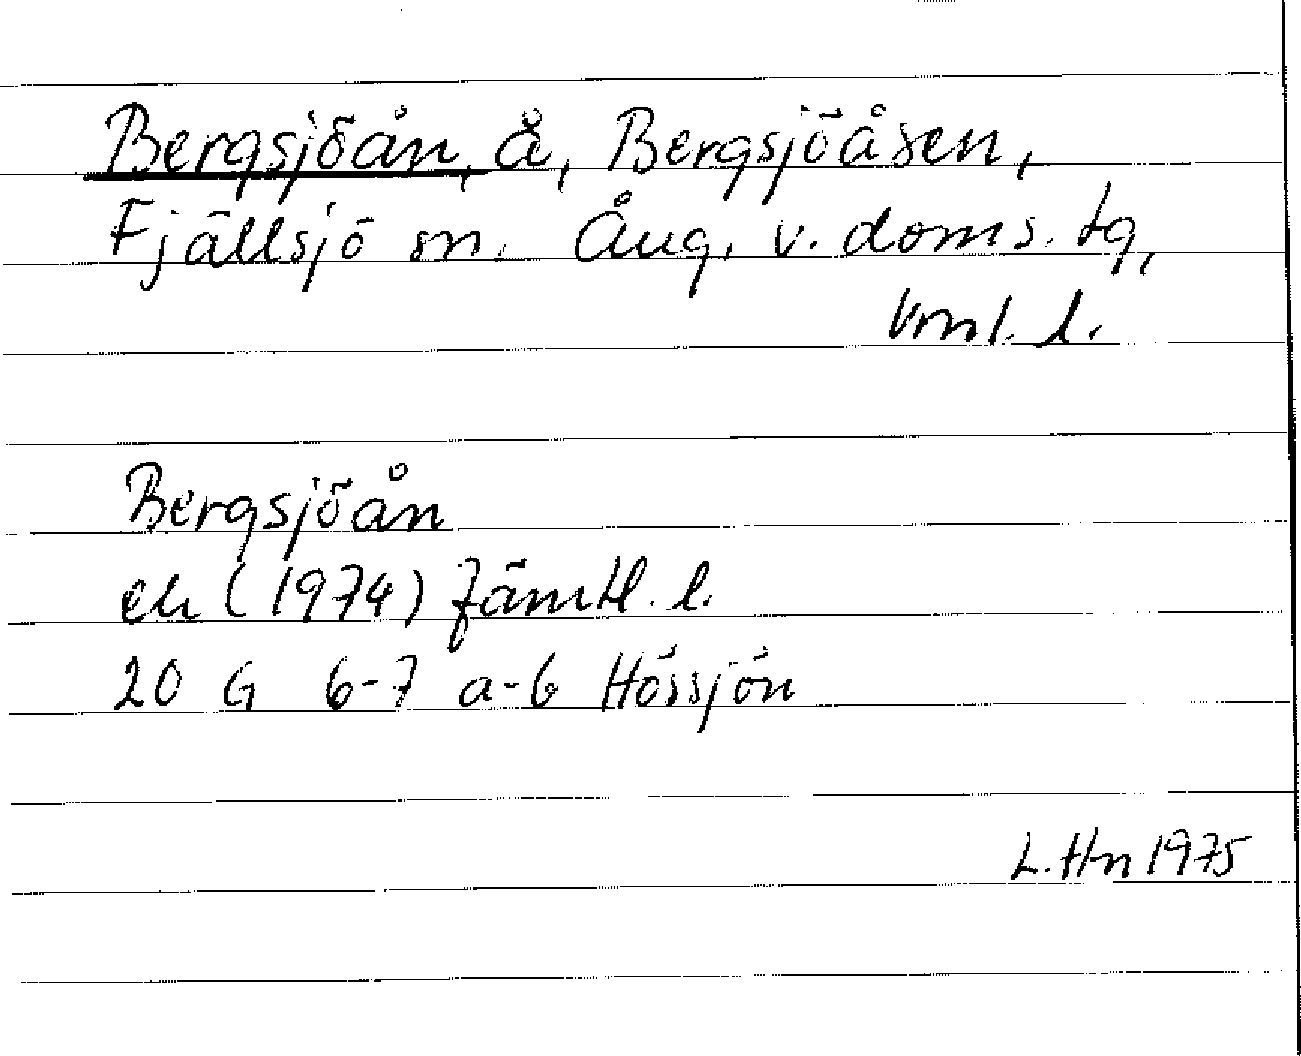 Bergsjöån, å, Bergsjöåsen,
Fjällsjö sn. Ång. v. doms. tg,
Vrnl. l.
Bergsjöån
ek (1974) Jämtl. l.
20 G 6-7 a-b Hössjön
L. Hn 1975